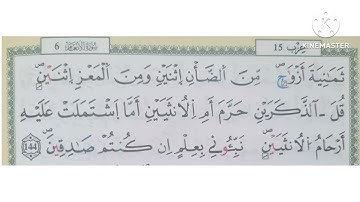 6 سورة الأنعام حزب 15
KINEMASTER
ثَمَٰنِيَةَ أَزْوَٰجٖ مِّنَ اَ۬لضَّأْنِ اِ۪ثْنَيْنِ وَمِنَ اَ۬لْمَعْزِ اِ۪ثْنَيْنِۖ
قُلَ آلذَّكَرَيْنِ حَرَّمَ أَمِ اِ۬لُانثَيَيْنِ أَمَّا اَ۪شْتَمَلَتْ عَلَيْهِ
أَرْحَامُ اُ۬لُانثَيَيْنِۖ نَبِّـُٔونِے بِعِلْمٍ اِن كُنتُمْ صَٰدِقِينَۖ 144